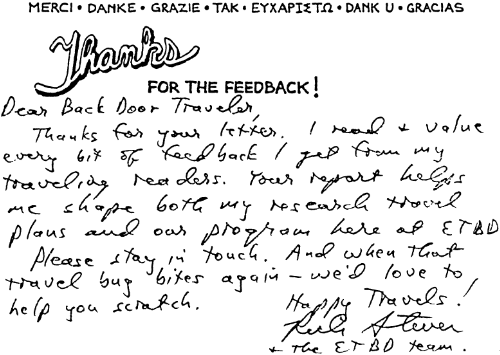 MERCI • DANKE • GRAZIE • TAK • ΕΥΧΑΡΙΣΤΩ • DANK U • GRACIAS
Thanks
FOR THE FEEDBACK!
Dear Back Door Traveler,
Thanks for your letter. I read & value
every bit of feedback I get from my
traveling readers. Your report helps
me shape both my research travel
plans and our program here at ETBD
Please stay in touch. And when that
travel bug bites again – we'd love to
help you scratch.
Happy Travels!
Rick Steves
& the ETBD team.